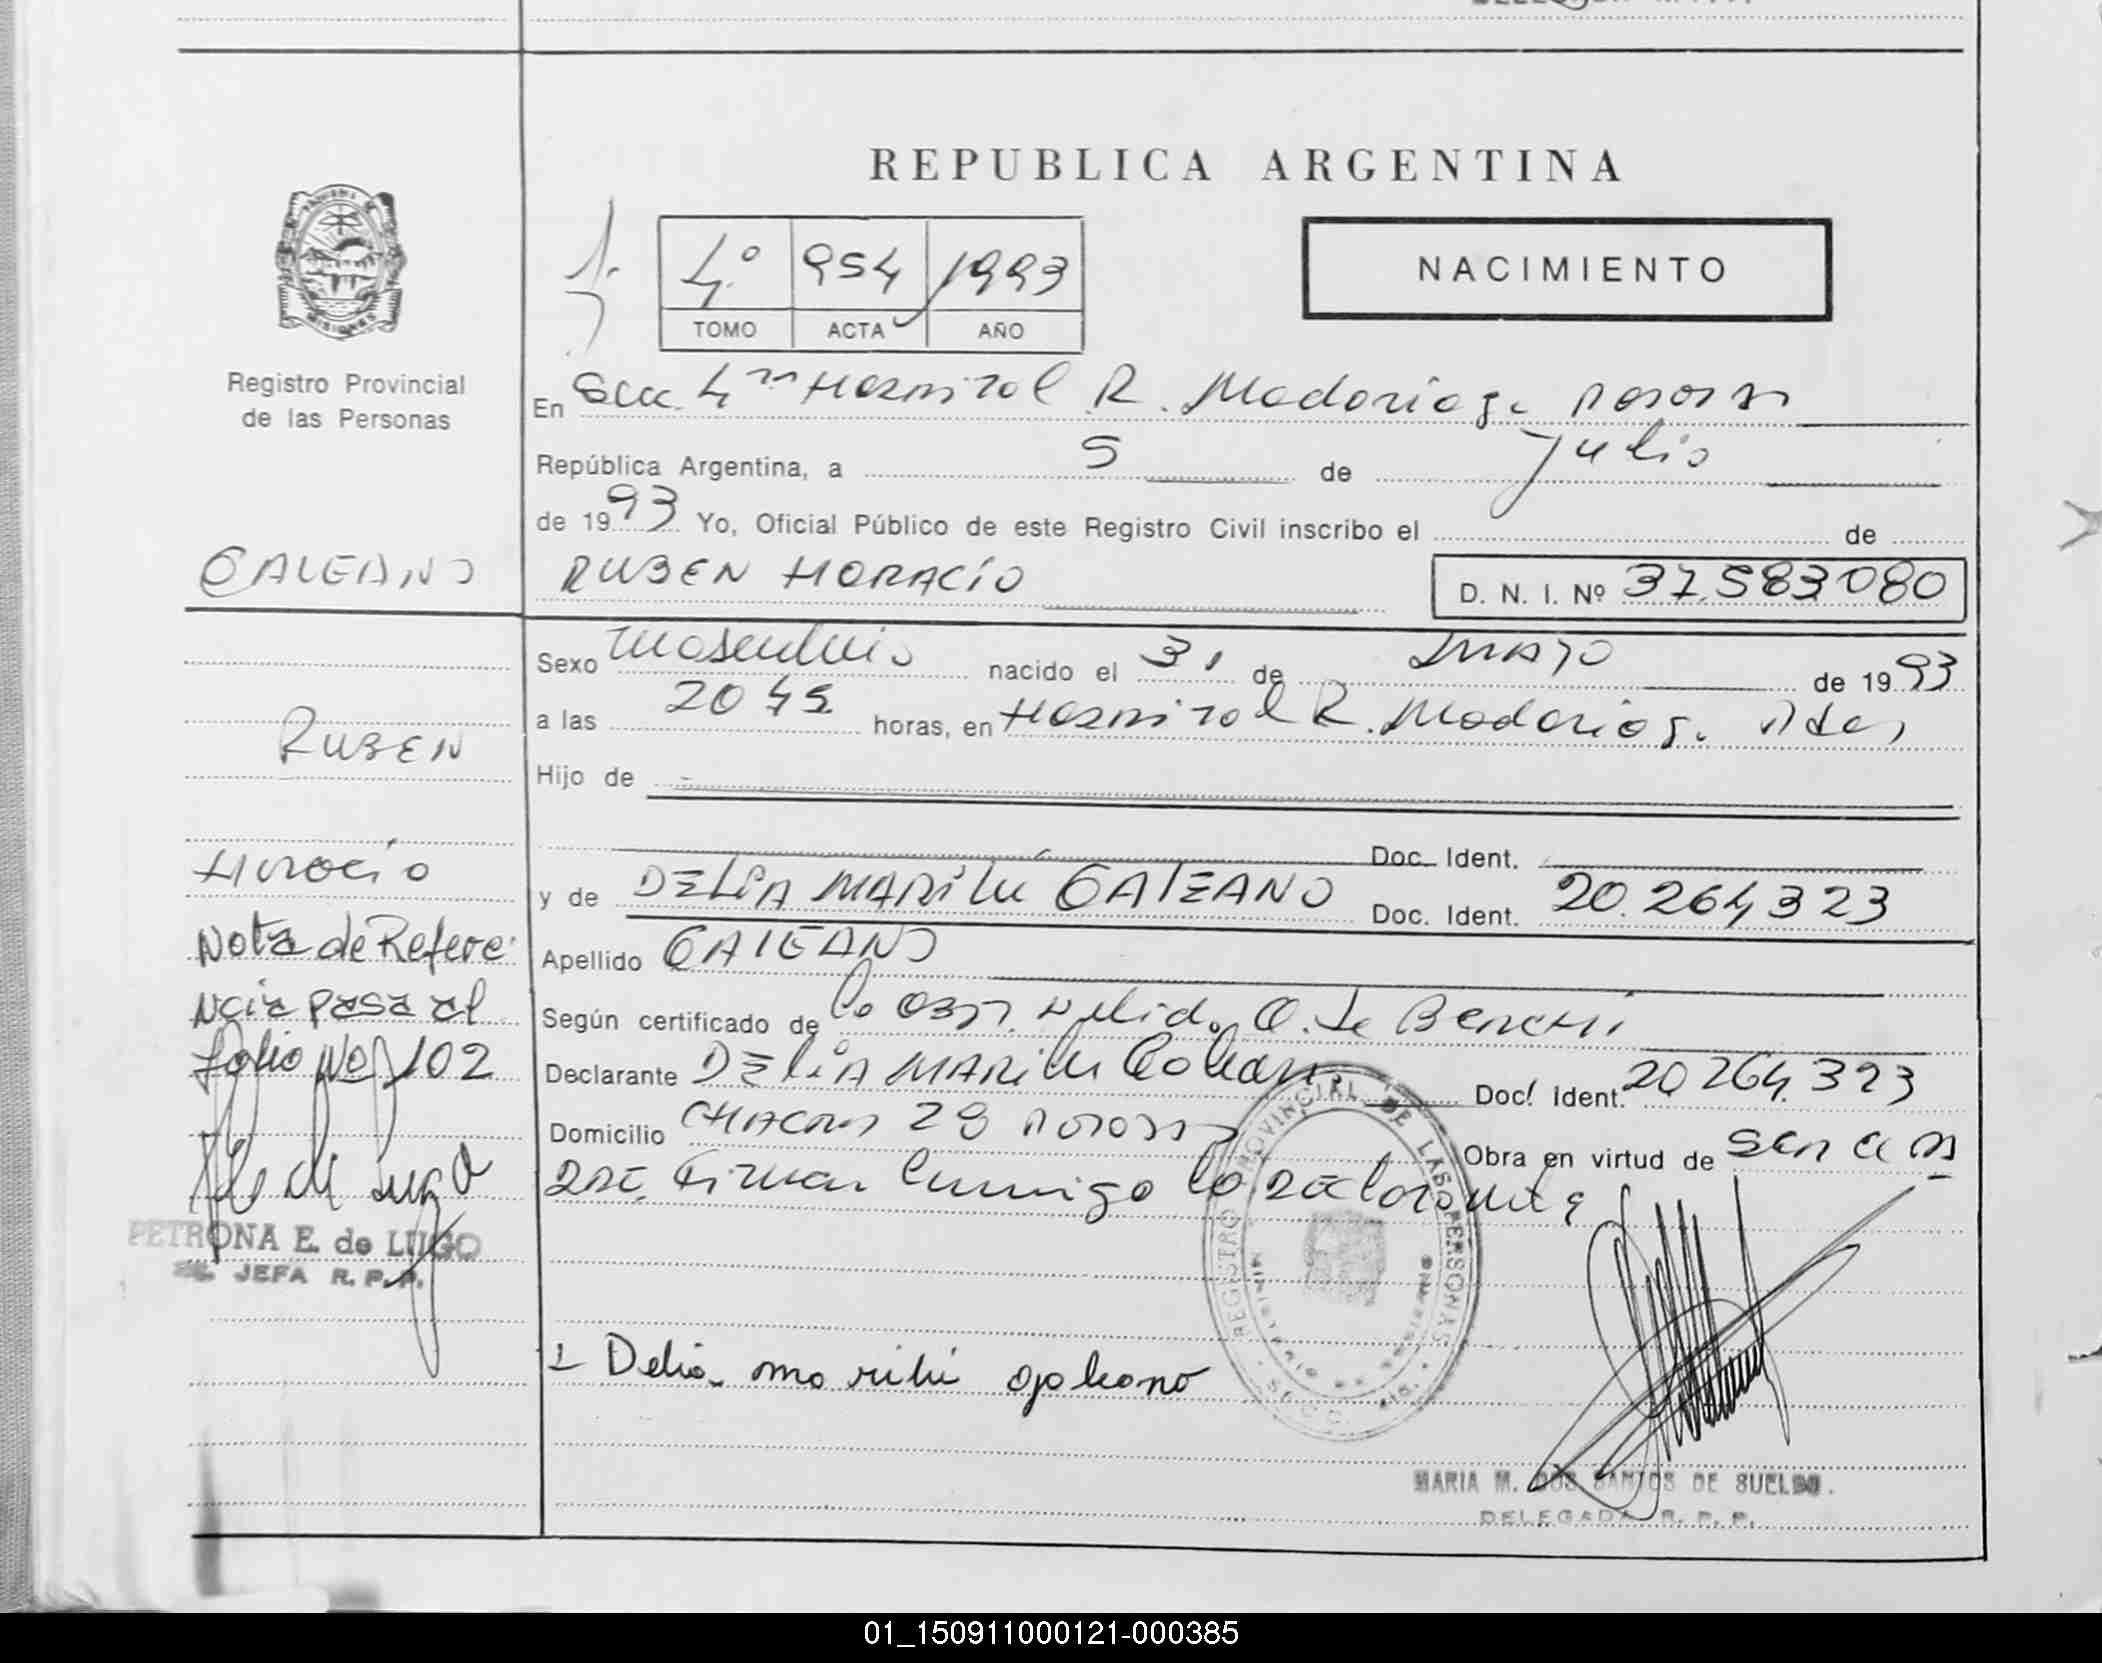 REPUBLICA ARGENTINA
NACIMIENTO
4º 954 1993
TOMO ACTA AÑO
PROVINCIA DE
MISIONES
Registro Provincial
de las Personas
En Secc. 4ta Hospital R. Madariaga Posadas
República Argentina, a 5 de Julio
de 1993 Yo, Oficial Público de este Registro Civil inscribo el de
GALEANO
RUBEN HORACIO
D. N. I. Nº 37.583080
Sexo masculino nacido el 31 de MAYO de 1993
a las 2045 horas, en Hospital R. Madariaga. Pdas,
RUBEN
Hijo de
Doc. Ident.
Horacio
y de DELIA MARILU GALEANO Doc. Ident. 20.264323
Nota de Refere-
ncia pasa al
folio Nº 102
Apellido GALEANO
Según certificado de la Obst. Nelida O. de
Declarante DELIA MARILU Galeano Doc. Ident. 20.264.323
Domicilio CHACRA 29 Posadas Obra en virtud de ser la
Firma conmigo la declarante
PETRONA E. de LUGO
JEFA R. P. P.
REGISTRO PROVINCIAL DE LAS PERSONAS
1 Delia marilú galeano
MARIA M. DOS SANTOS DE SUELDO.
DELEGADA R. P. P.
01_150911000121-000385